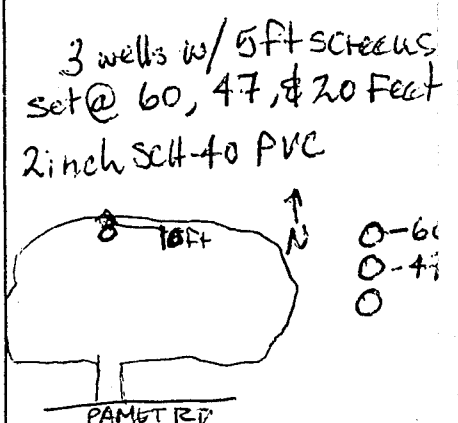 3 wells w/ 5ft screens
set @ 60, 47, & 20 Feet
2 inch SCH 40 PVC
10ft
N
O-60
O-47
PAMET RD